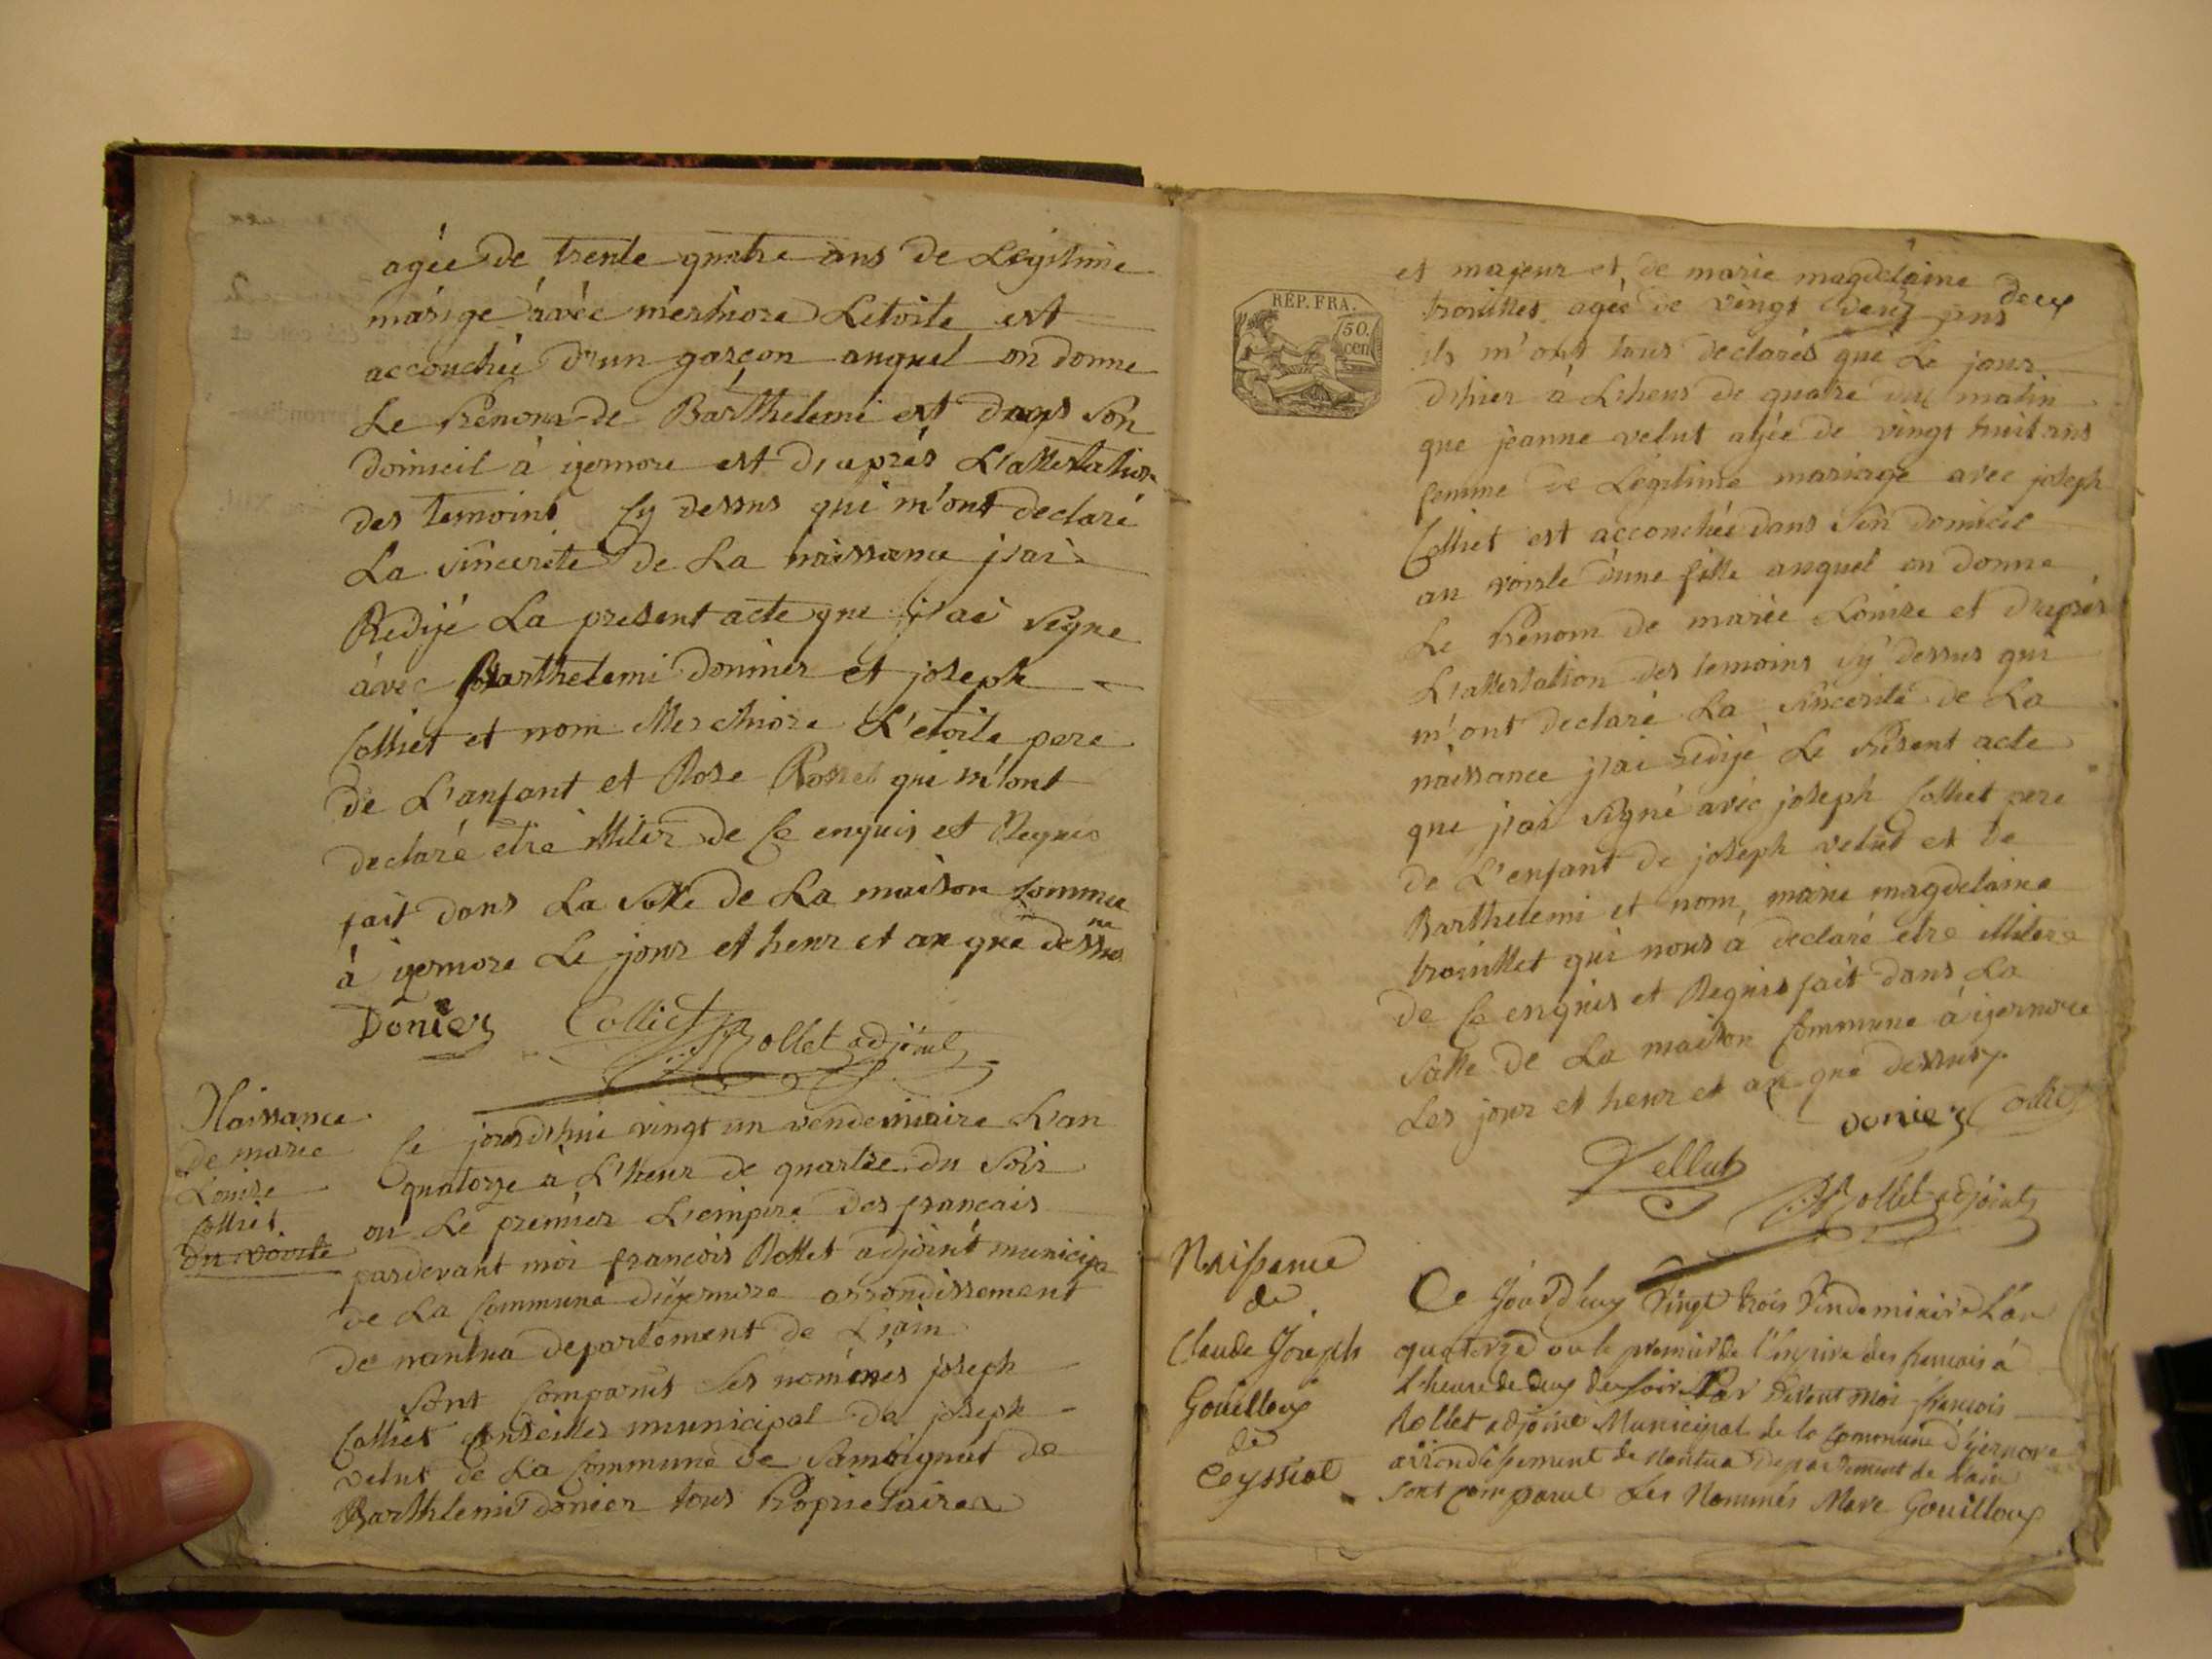 agée de trente quatre ans de Legitime
márige ávéc merhiore Letoile est
accouchée d'un garçon auquel on donne
Le Prénom de Barthelemi est dans son
domicil à igernore est d'aprés L'attestation
des temoins Cy dessus qui m'ont declaré
La sincerité de La naissance j'ai
Redijé La present acte que j'ai signe
ávéc Barthelemi donnier et joseph
Colliet et nom Merchiore L'etoile pere
de L'anfant et Rose Rosset qui m'ont
declaré etre illiter de Ce enquis et Requis
fait dans La salle de La maison Commu
ne
à igernore Le jour et heur et an que dessus
Donier Colliet Rollet adjoint
Naissance
de marie
Louise
Colliet
du voirle
Ce jourd'hui vingt un vendemiaire L'an
quatorze à L'heur de quartre du soir
ou Le prémier L'empire des francais
pardevant moi francois Rollet adjoint municipa
de La Commune d'igernore arrondissement
de nantua departement de L'ain
sont Comparus Les nommés joseph
Colliet Conseiller municipal de joseph
velut de La Commune de Samoignat de
Barthlemi donier tous Proprietaires
RÉP. FRA.
50.
cen.
et majeur et de marie magdelaine
trouillet agée de vingt deux ans deux
ils m'ont tous declarés que Le jour
d'hier à L'heur de quatre du matin
que jeanne velut agée de vingt huit ans
femme de Légitime mariage avec joseph
Colliet est accouchée dans son domicil
au voirle d'une fille auquel on donne
Le Prénom de marie Louise et d'aprés
L'attestation des temoins cy dessus qui
m'ont declaré La sincerité de La
naissance j'ai redijé Le présent acte
que j'ai signé avéc joseph Colliet pere
de L'enfant de joseph velut et de
Barthelemi et nom marie magdelaine
trouillet qui nous à declaré etre illitere
de Ce enquis et Requis fait dans La
salle de La maison Commune à igernore
Les jour et heur et an que dessus
donier Colliet
Vellut
Rollet adjoint
Naissance
de
Claude Joseph
Gouilloux
de
Ceyssiat
Ce Jourd'huy Vingt trois Vendemiaire L'an
quatorze ou le premier de l'Empire des francois à
L'heure de deux du soir Par Devant Moi francois
Rollet adjoint Municipal de la Commune d'ijernore
arrondissement de Nantua Departement de Lain
sont comparut Les Nommés Marc Gouilloux